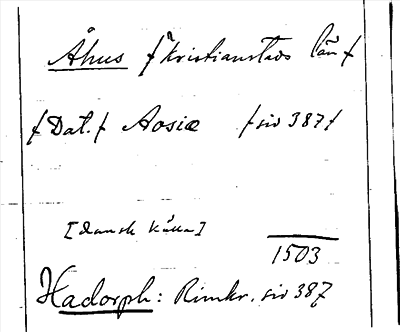 Åhus /Kristianstads län/
/Dat./ Aosiæ /sid 387/
[dansk källa]
1503
Hadorph: Rimkr. sid 387